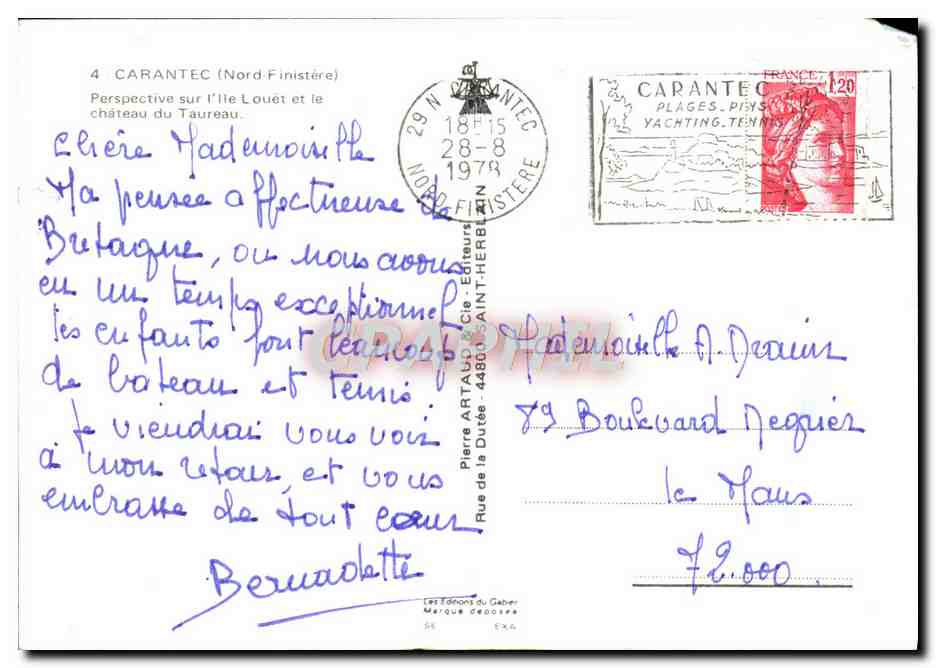 4 CARANTEC (Nord-Finistère)
Perspective sur l'Ile Louët et le
château du Taureau.
Chère Mademoiselle
Ma pensée affectueuse de
Bretagne, où nous avons
eu un temps exceptionnel
les enfants font beaucoup
de bateau et tennis.
Je viendrai vous voir
à mon retour, et vous
embrasse de tout cœur
Bernadette
29 N CARANTEC
18H15
28-8
1978
NORD-FINISTERE
CARANTEC
PLAGES-PINS
YACHTING-TENNIS
FRANCE 1,20
Pierre ARTAUD & Cie - Editeurs
Rue de la Dutée - 44800 SAINT-HERBLAIN
CPAPHIL
Mademoiselle A.
89 Boulevard Negrier
le Mans
72.000.
Les Editions du Gabier
Marque déposée
SE EXA